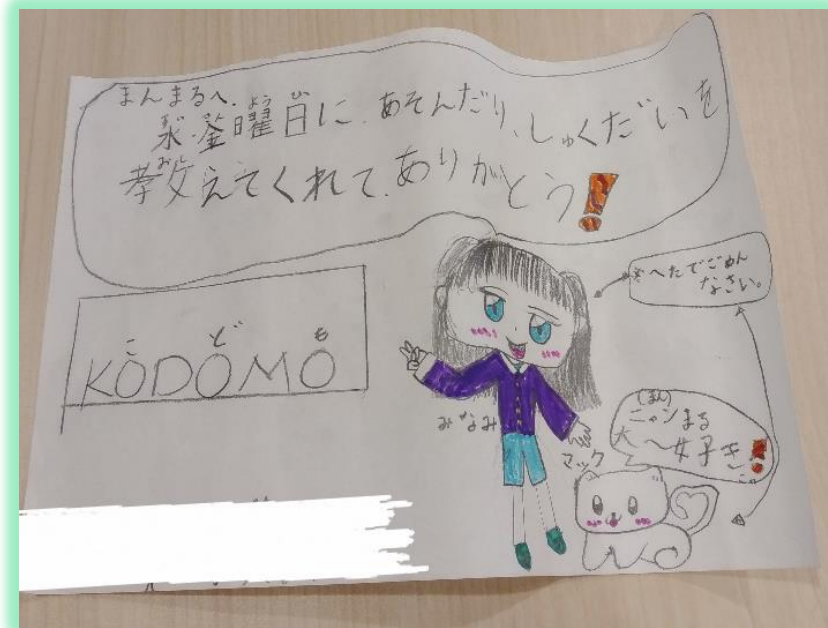 まんまるへ、
水、金曜日に、あそんだり、しゅくだいを
教えてくれて、ありがとう!
KODOMO
こども
※へたでごめん
なさい。
みなみ
マック
(まん)
ニャンまる
大〜好き!